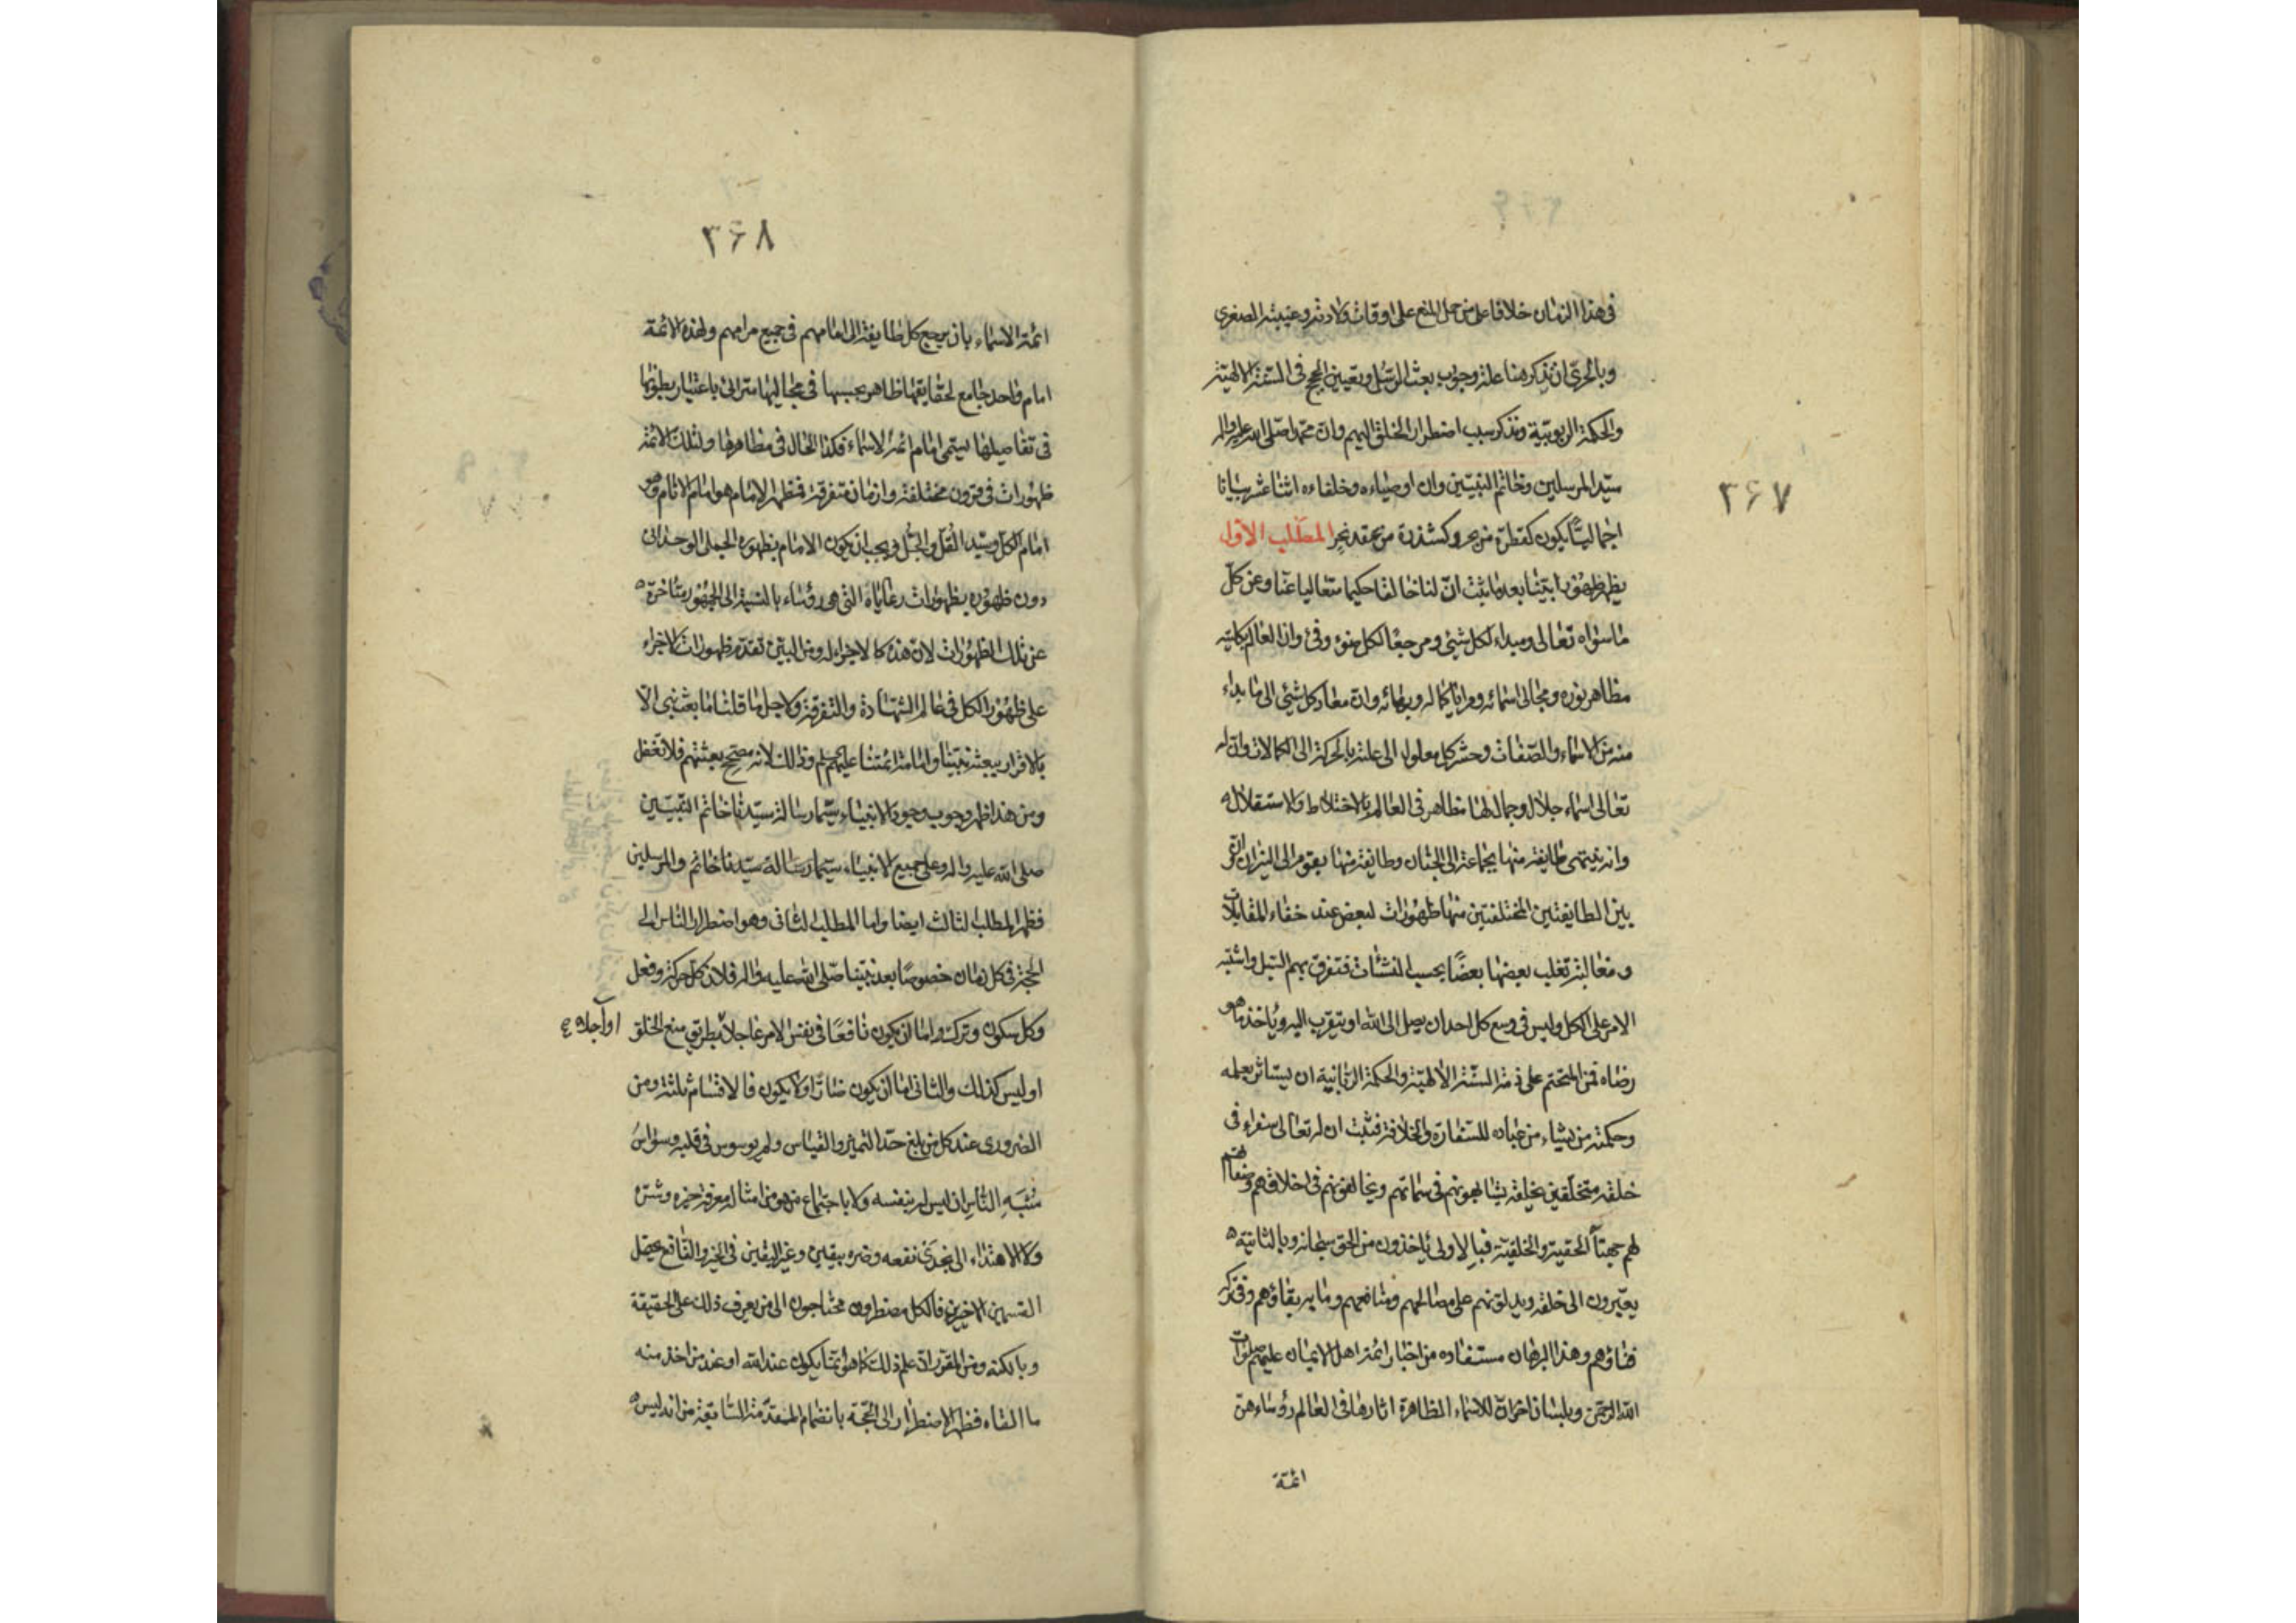 ۳۶۷
فى هذا الزمان خلافا على من حمل المنع على اوقات ولادته وغيبته الصغرى
وبالحرىّ ان نذكر هنا علة وجوب بعث الرسل وتعيين الحجج فى السنة الالهية
والحكمة الربوبيّة ونذكر سبب اضطرار الخلق اليهم وان محمّدا صلى الله عليه واله
سيّد المرسلين وخاتم النبيّين وان اوصياءه وخلفاءه اثنا عشر بيانا
اجماليّا يكون كقطرة من بحر وكشذرة من عقد نحر المطلب الاوّل
يظهر ظهورا بيّنا بعد ما ثبت انّ لنا خالقا حكيما متعاليا عنّا وعن كلّ
ما سواه تعالى ومبداء لكل شيئ ومرجعا لكل ضوء وفئ وان العالم بكليته
مظاهر نوره ومجالى اسمائه ومرايا كماله وبهائه وان معاد كل شيئ الى ما بداء
منه من الاسماء والصّفات وحشر كل معلول الى علته بالحركة الى الكمالات وان له
تعالى اسماء جلال وجمال لها مظاهر فى العالم بالاختلاط والاستقلال
وانه ينتهى طايفة منها بجماعة الى الجنان وطايفة منها بقوم الى النيران التى
بين الطايفتين المختلفتين منها ظهورات لبعض عند خفاء المقابلات
ومغالبة تغلب بعضها بعضًا بحسب النشئات فتفرق بهم السّبل واشتبه
الامر على الكل وليس فى وسع كل احد ان يصل الى الله او يتقرب اليه وياخذ ما هو
رضاه فمن المتحتم على ذمة السّنة الالهيّة والحكمة الربّانية ان يستاثر بعلمه
وحكمته من يشاء من عباده للسّفارة والخلافة فثبت ان له تعالى سفراء فى
خلقه متخلّقين بخلقه يشابهونهم فى سماتهم ويخالفونهم فى اخلاقهم وصفاتهم
لهم جهتا الحقية والخلقيّة فبالاولى ياخذون من الحق سبحانه وبالثانية
يعبّرون الى خلقه ويدلونهم على مصالحهم ومنافعهم وما به بقاؤهم وفى تركه
فناؤهم وهذا البرهان مستفاده من اخبار ائمة اهل الايمان عليهم صلوات
الله الرحمن وبلسان اخر ان للاسماء الظاهرة اثارها فى العالم رؤساء هنّ
ائمة
۳۶۸
ائمة الاسماء بان يرجع كل طايفة الى امامهم فى جميع مرامهم ولهذه الائمة
امام واحد جامع لحقايقها ظاهر بحسبها فى مجاليها متراائ باعتبار بطونها
فى تفاصيلها يسمّى امام ائمة الاسماء فكذا الحال فى مظاهرها ولتلك الائمة
ظهورات فى قرون مختلفة وازمان متفرقة فمظهر الامام هو امام الانام وهو
امام الكل وسيد القلّ والجلّ فيجب ان يكون الامام بظهوره الجملى الوحدانى
دون ظهوره بظهورات رعاياه التى هى رؤساء بالنسبة الى الجمهور متاخرة
عن تلك الظهورات لان هذه كالاجزاء له ومن البيّن تقدم ظهورات الاجزاء
على ظهور الكل فى عالم الشهادة والتفرقة ولاجل ما قلنا ما بعث نبى الّا
بالاقرار ببعثة نبيّنا وامامة ائمّتنا عليهم السلم وذلك لانه مصحح بعثتهم فلا تغفل
ومن هذا ظهر وجوب وجود الانبياء سيّما رسالة سيّدنا خاتم النبيّين
صلى الله عليه واله وعلى جميع الانبياء سيما رسالة سيّدنا خاتم والمرسلين
فظهر المطلب الثالث ايضا واما المطلب الثانى وهو اضطرار الناس الى
الحجة فى كل زمان خصوصًا بعد نبيّنا صلّى الله عليه واله فلان كل حركة وفعل
وكل سكون وترك واما ان يكون نافعًا فى نفس الامر عاجلا بطريق منع الخلو
او آجلا
او ليس كذلك والثانى اما ان يكون ضارّا او لا يكون فالاقسام ثلثة ومن
الضرورى عند كل من بلغ حدّ التميز والقياس ولم يوسوس فى قلبه وسواس
شبه الناس ان ليس له بنفسه ولا باجتماع من هو من امثاله معرفة خيره وشره
ولا الاهتداء الى نجدى نفعه وضره بيقين وغير اليقين فى الخير والنافع يحصل
القسمين الاخيرين فالكل مضطرون محتاجون الى من يعرف ذلك على الحقيقة
وبالكنه ومن المقرر ان علم ذلك كما هو انّما يكون عند الله او عند من اخذ منه
ما القاه فظهر الاضطرار الى الحجّة بانضمام المقدّمة السّابقة من انه ليس